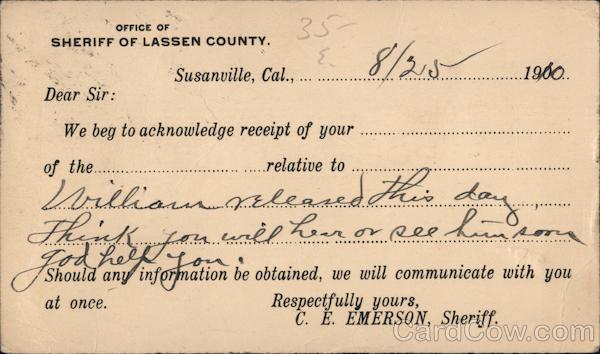 OFFICE OF
SHERIFF OF LASSEN COUNTY.
35
E.
Susanville, Cal., 8/25 1910
Dear Sir:
We beg to acknowledge receipt of your
of the relative to
William released this day,
Think you will hear or see him soon
god help you.
Should any information be obtained, we will communicate with you
at once. Respectfully yours,
C. E. EMERSON, Sheriff.
CardCow.com